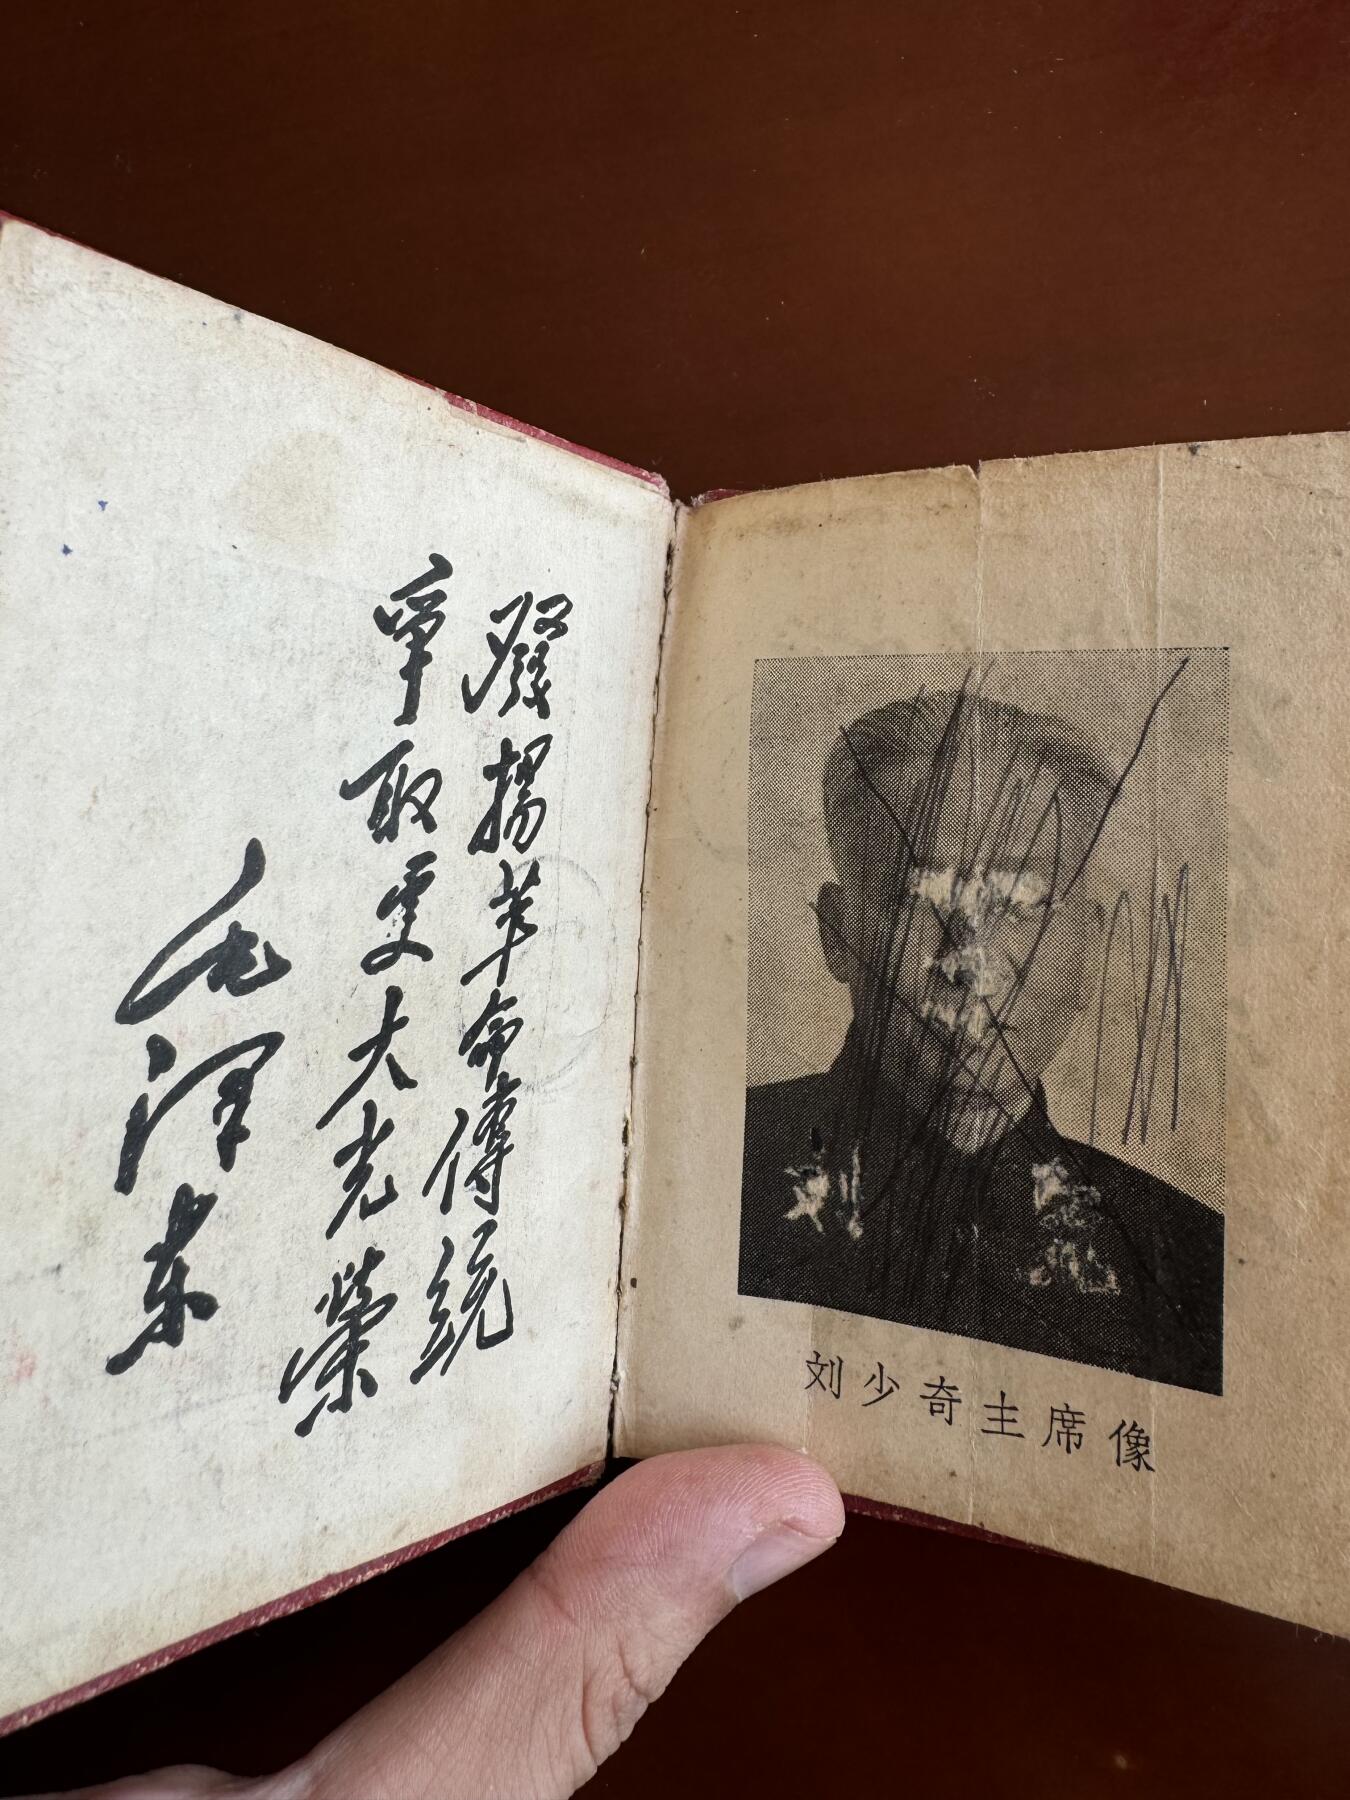 發揚革命傳統
爭取更大光榮
毛澤东
刘少奇主席像